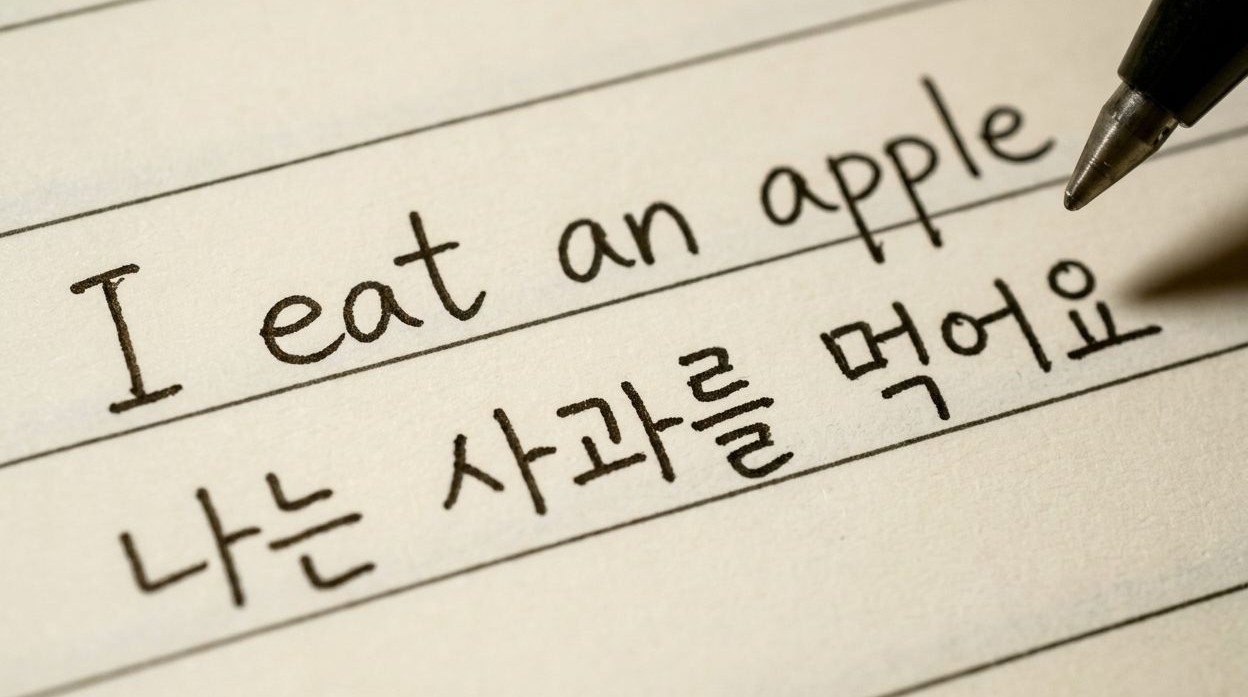 I eat an apple
나는 사과를 먹어요